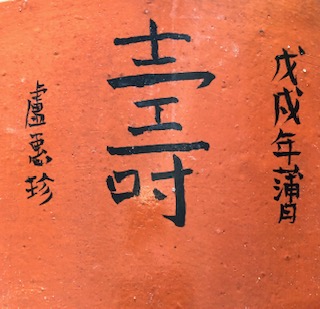 戊戌年蒲月
壽
盧惠珍